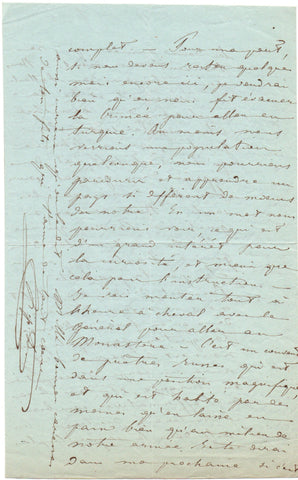 complet. — Pour ma part,
si nous devons rester quelques
mois encore ici, je voudrais
bien qu'on nous fit évacuer
la Crimée pour aller en
Turquie. Au moins nous
verrions une population
quelconque, nous pourrions
parcourir et apprendre un
pays si différent de mœurs
du nôtre. En un mot nous
pourrions voir, ce qui est
d'un grand intérêt pour
la curiosité et mieux que
cela pour l'instruction.
Je vais monter tout à
l'heure à cheval avec le
Général pour aller au
Monastère. C'est un couvent
de prêtres russes qui est
dans une position magnifique
et qui est habité par des
moines qu'on laisse en
paix bien qu'au milieu de
notre armée. Je te dirai
dans ma prochaine si c'est